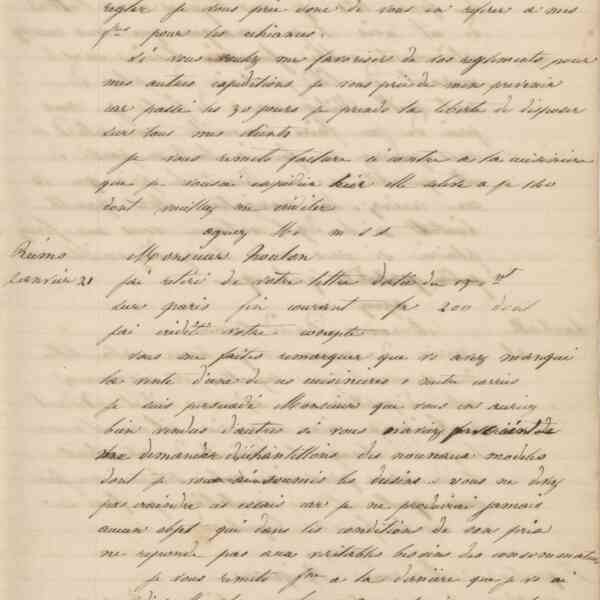 regler je vous prie donc de vous en referer a mes
fres pour les echeances.
Si vous voulez me favoriser de vos reglements pour
mes autres expeditions je vous prie de m'en prevenir
car passé les 30 jours je prends la liberté de disposer
sur tous mes clients
je vous remets facture ci contre a la cuisiniere
que je vous ai expediée hier elle s'eleve a fr 120
dont veuillez me crediter
agreez Mr m s s
Reims
Janvier 21
Monsieur Houlon
j'ai retiré de votre lettre datée du 19 ct
sur paris fin courant fr 200 dont
j'ai crédité votre compte
vous me faites remarquer que vs avez manqué
la vente d'une de vos cuisinieres 0 metre carrés
je suis persuadé Monsieur que vous en auriez
bien vendus d'autres si vous m'aviez
demander d'echantillons des nouveaux modeles
dont je vous ai soumis les dessins. vous ne devez
pas craindre ces essais car je ne produirai jamais
aucun objet qui dans les conditions de son prix
ne reponde pas aux veritables besoins des consommateurs
je vous remets fre a la derniere que je vs ai